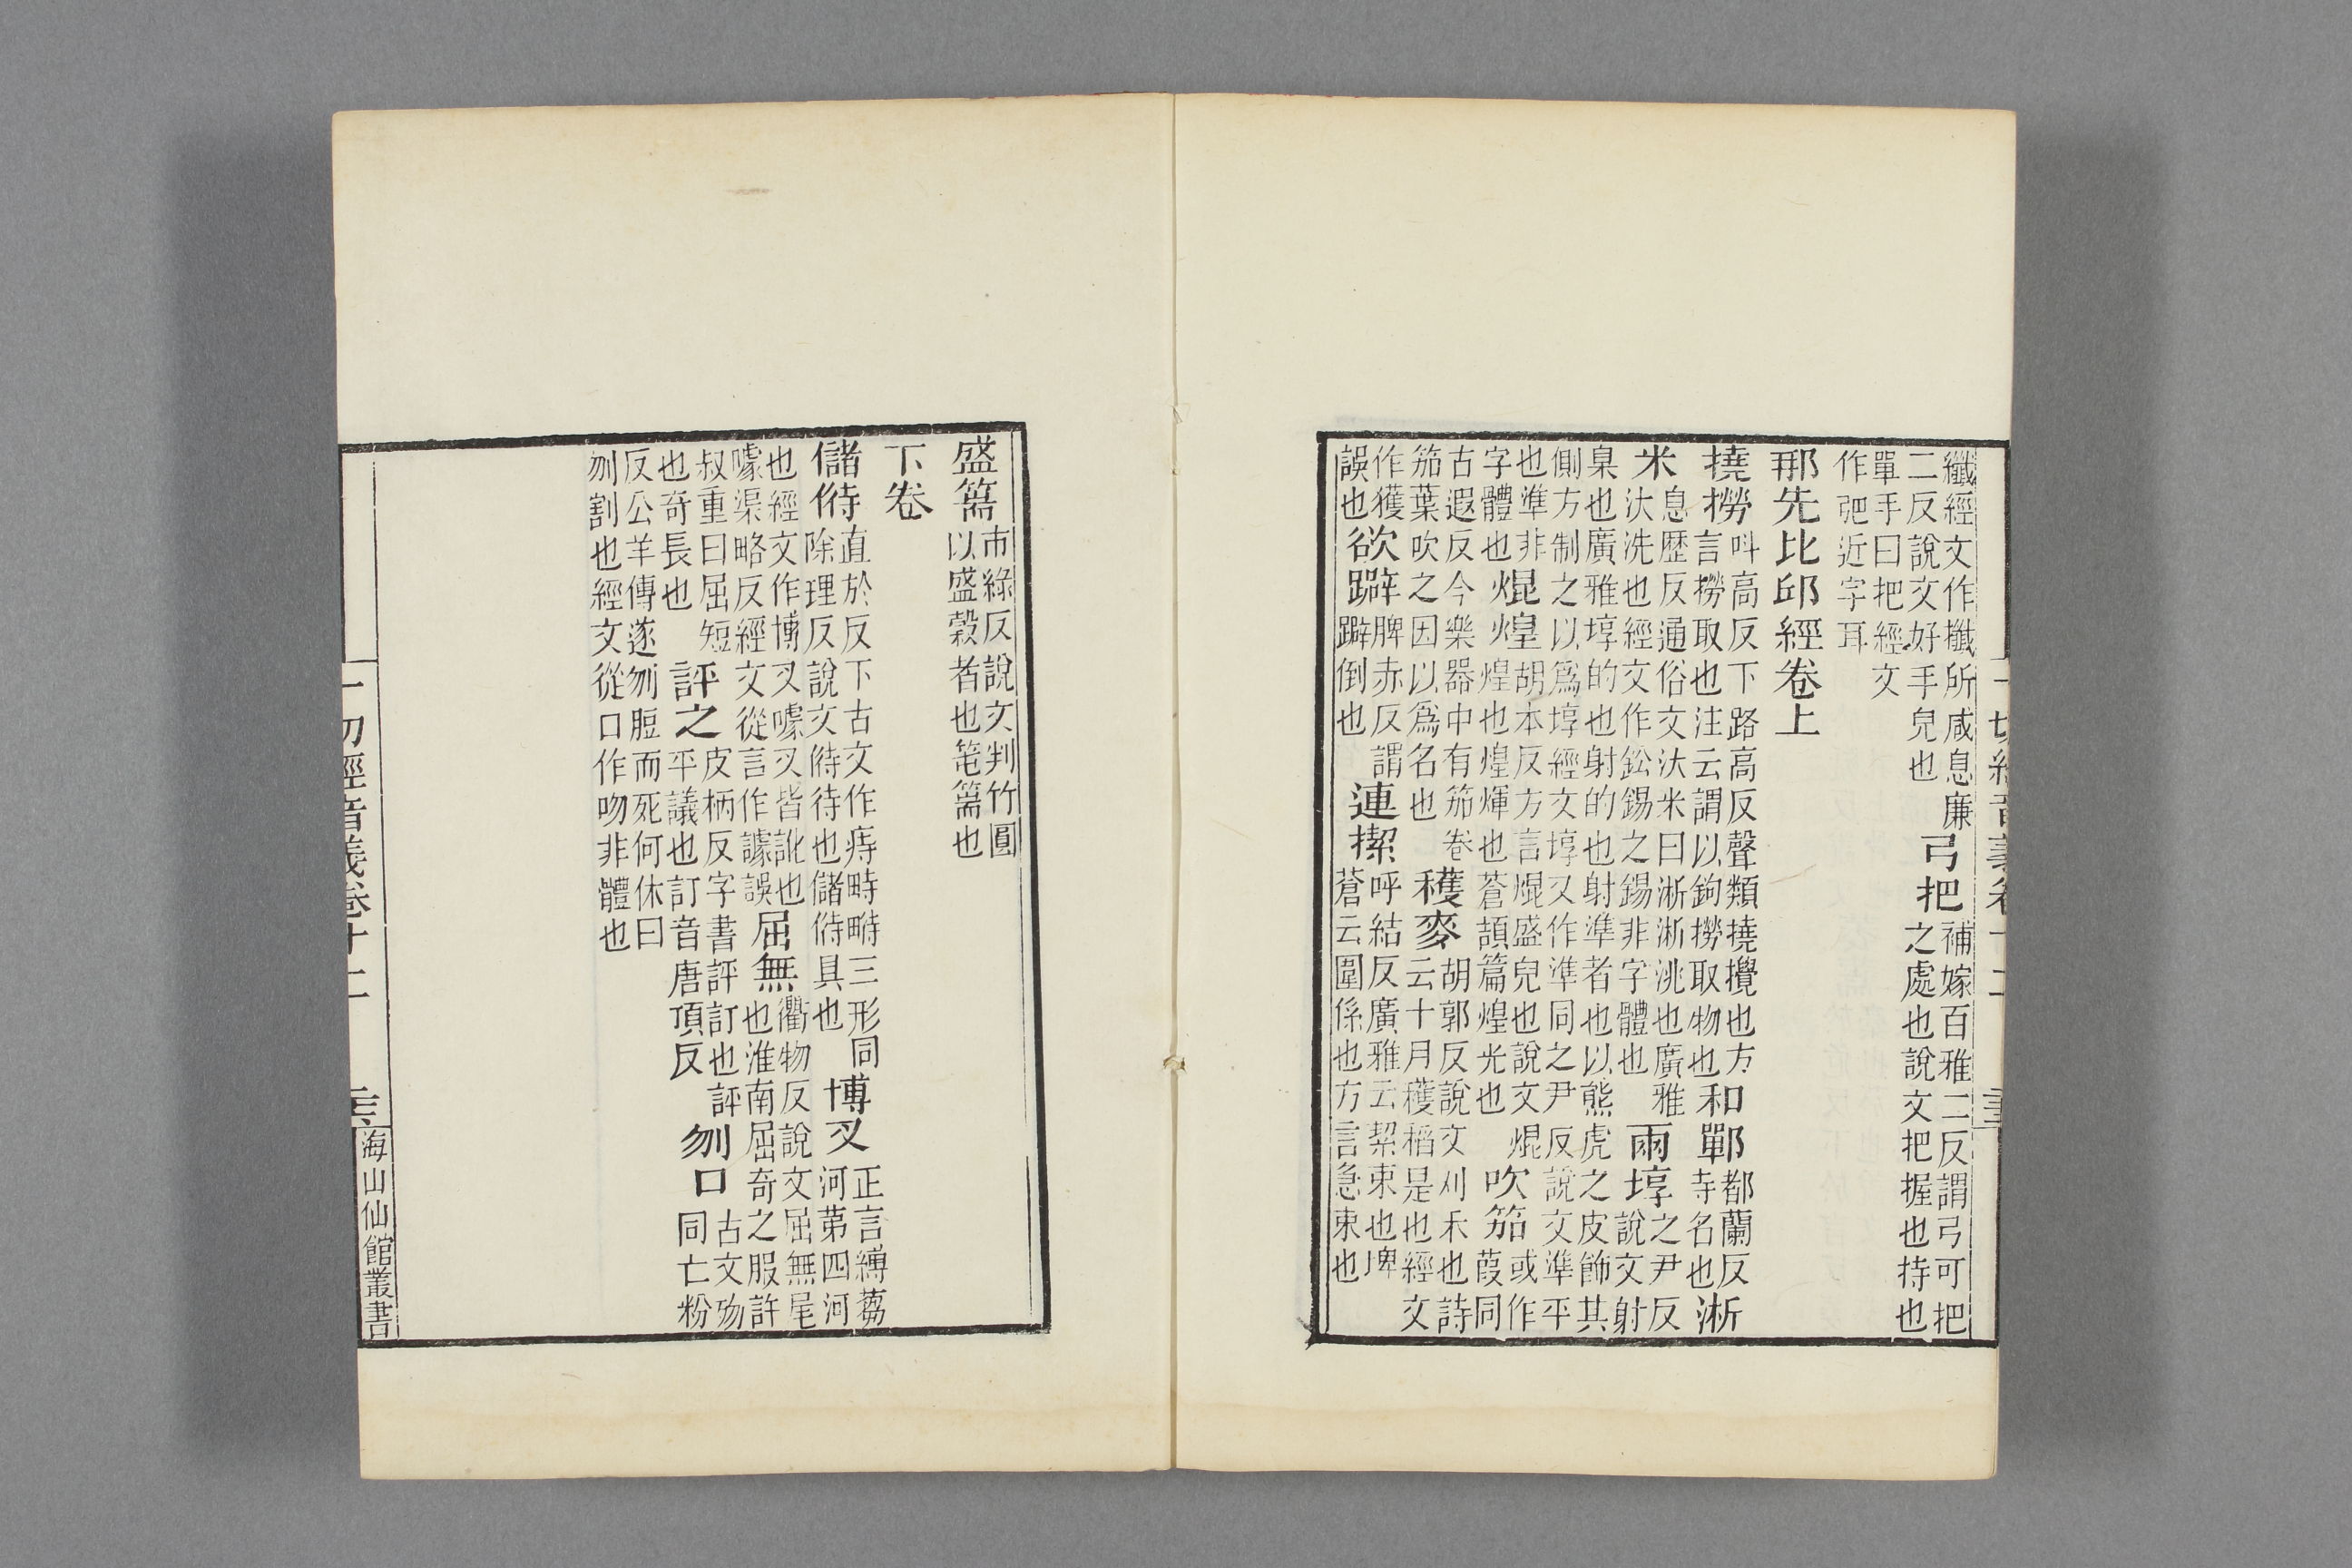 纖經文作櫼所咸息廉
二反說文好手皃也
弓把
補嫁百雅二反謂弓可把
之處也說文把握也持也
單手曰把經文
作弝近字耳
那先比邱經卷上
撓撈
呌高反下路高反聲類撓攪也方
言撈取也注云謂以鉤撈取物也
和鄲
都蘭反
寺名也
淅
米
息歷反通俗文汏米曰淅淅洮也廣雅
汏洗也經文作鉛錫之錫非字體也
兩埻
之尹反
說文射
臬也廣雅埻的也射的也射準者也以熊虎之皮飾其
側方制之以爲埻經文埻又作準同之尹反說文準平
也準非
字體也
焜煌
胡本反方言焜盛皃也說文焜
煌也煌煇也蒼頡篇煌光也
吹笳
或作
葭同
古遐反今樂器中有笳卷
笳葉吹之因以爲名也
穫麥
胡郭反說文刈禾也詩
云十月穫稻是也經文
作獲
誤也
欲躃
脾赤反謂
躃倒也
連㩢
呼結反廣雅云絜束也埤
蒼云圍係也方言急束也
一切經音義卷十二
盛篅
市綠反說文判竹圓
以盛穀者也笔篅也
下卷
儲偫
直於反下古文作庤畤䠧三形同
除理反說文偫待也儲偫具也
博叉
正言縛蒭
河第四河
也經文作博叉㗲叉皆訛也
㗲渠略反經文從言作謔誤
屈無
衢物反說文屈無尾
也淮南屈奇之服許
叔重曰屈短
也奇長也
評之
皮柄反字書評訂也評
平議也訂音唐頂反
刎口
古文歾
同亡粉
反公羊傳遂刎脰而死何休曰
刎割也經文從口作吻非體也
一切經音義卷十二
海山仙館叢書